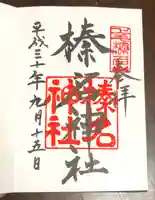 参拝
榛名神社
榛名
神社
平成三十年九月十五日